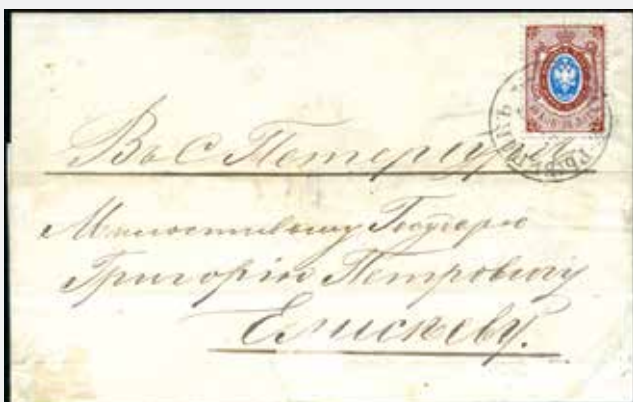 Въ С Петербургъ
Милостивому Государю
Григорію Петровичу
Елисѣеву.